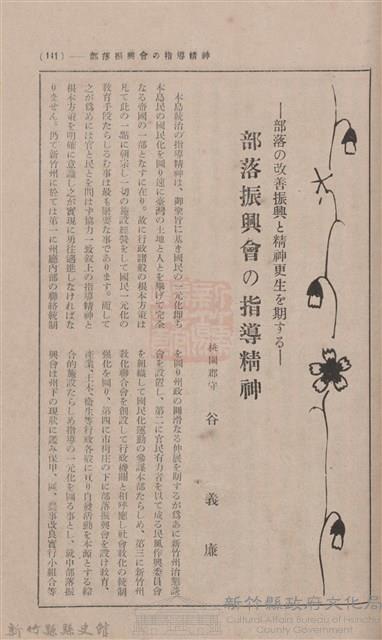 (141)——部落振興會の指導精神
——部落の改善振興と精神更生を期する——
部落振興會の指導精神
桃園郡守 谷義廉
本島統治の指導精神は、御聖旨に基き國民の一元化卽ち
本島民の國民化を圖り遂に臺灣の土地と人とを擧げて完全
なる帝國の一部となすに在り。故に行政諸般の根本方策は
凡て此の一點に朝宗し一切の施設經營をして國民一元化の
教育手段たらしむる事は最も緊要な事であります。而して
之が爲めには官と民とを問はず協力一致叙上の指導精神と
根本方策を明確に意識し之が實現に勇往邁進しなければな
りません。仍て新竹州に於ては第一に州廳內部の聯絡統制
を圖り州政の圓滑なる伸展を期するが爲めに新竹州治懇談
會を設置し、第二に官民有力者を以て成る民風作興委員會
を組織して國民化運動の參謀本部たらしめ、第三に新竹州
敎化聯合會を創設して行政機關と相呼應し社會敎化の統制
强化を圖り、第四に市街庄の下に部落振興會を設け敎育、
產業、土木、衞生等行政各般に亘り自發活動を本源とする綜
合的施設たらしめ指導の一元化を圖る事とし、就中部落振
興會は州下の現狀に鑑み保甲、區、農事改良實行小組合等
新竹縣縣史館
新竹縣政府文化局
Cultural Affairs Bureau of Hsinchu
County Government